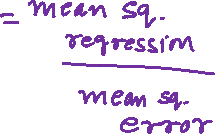 = mean sq.
regression
mean sq.
error